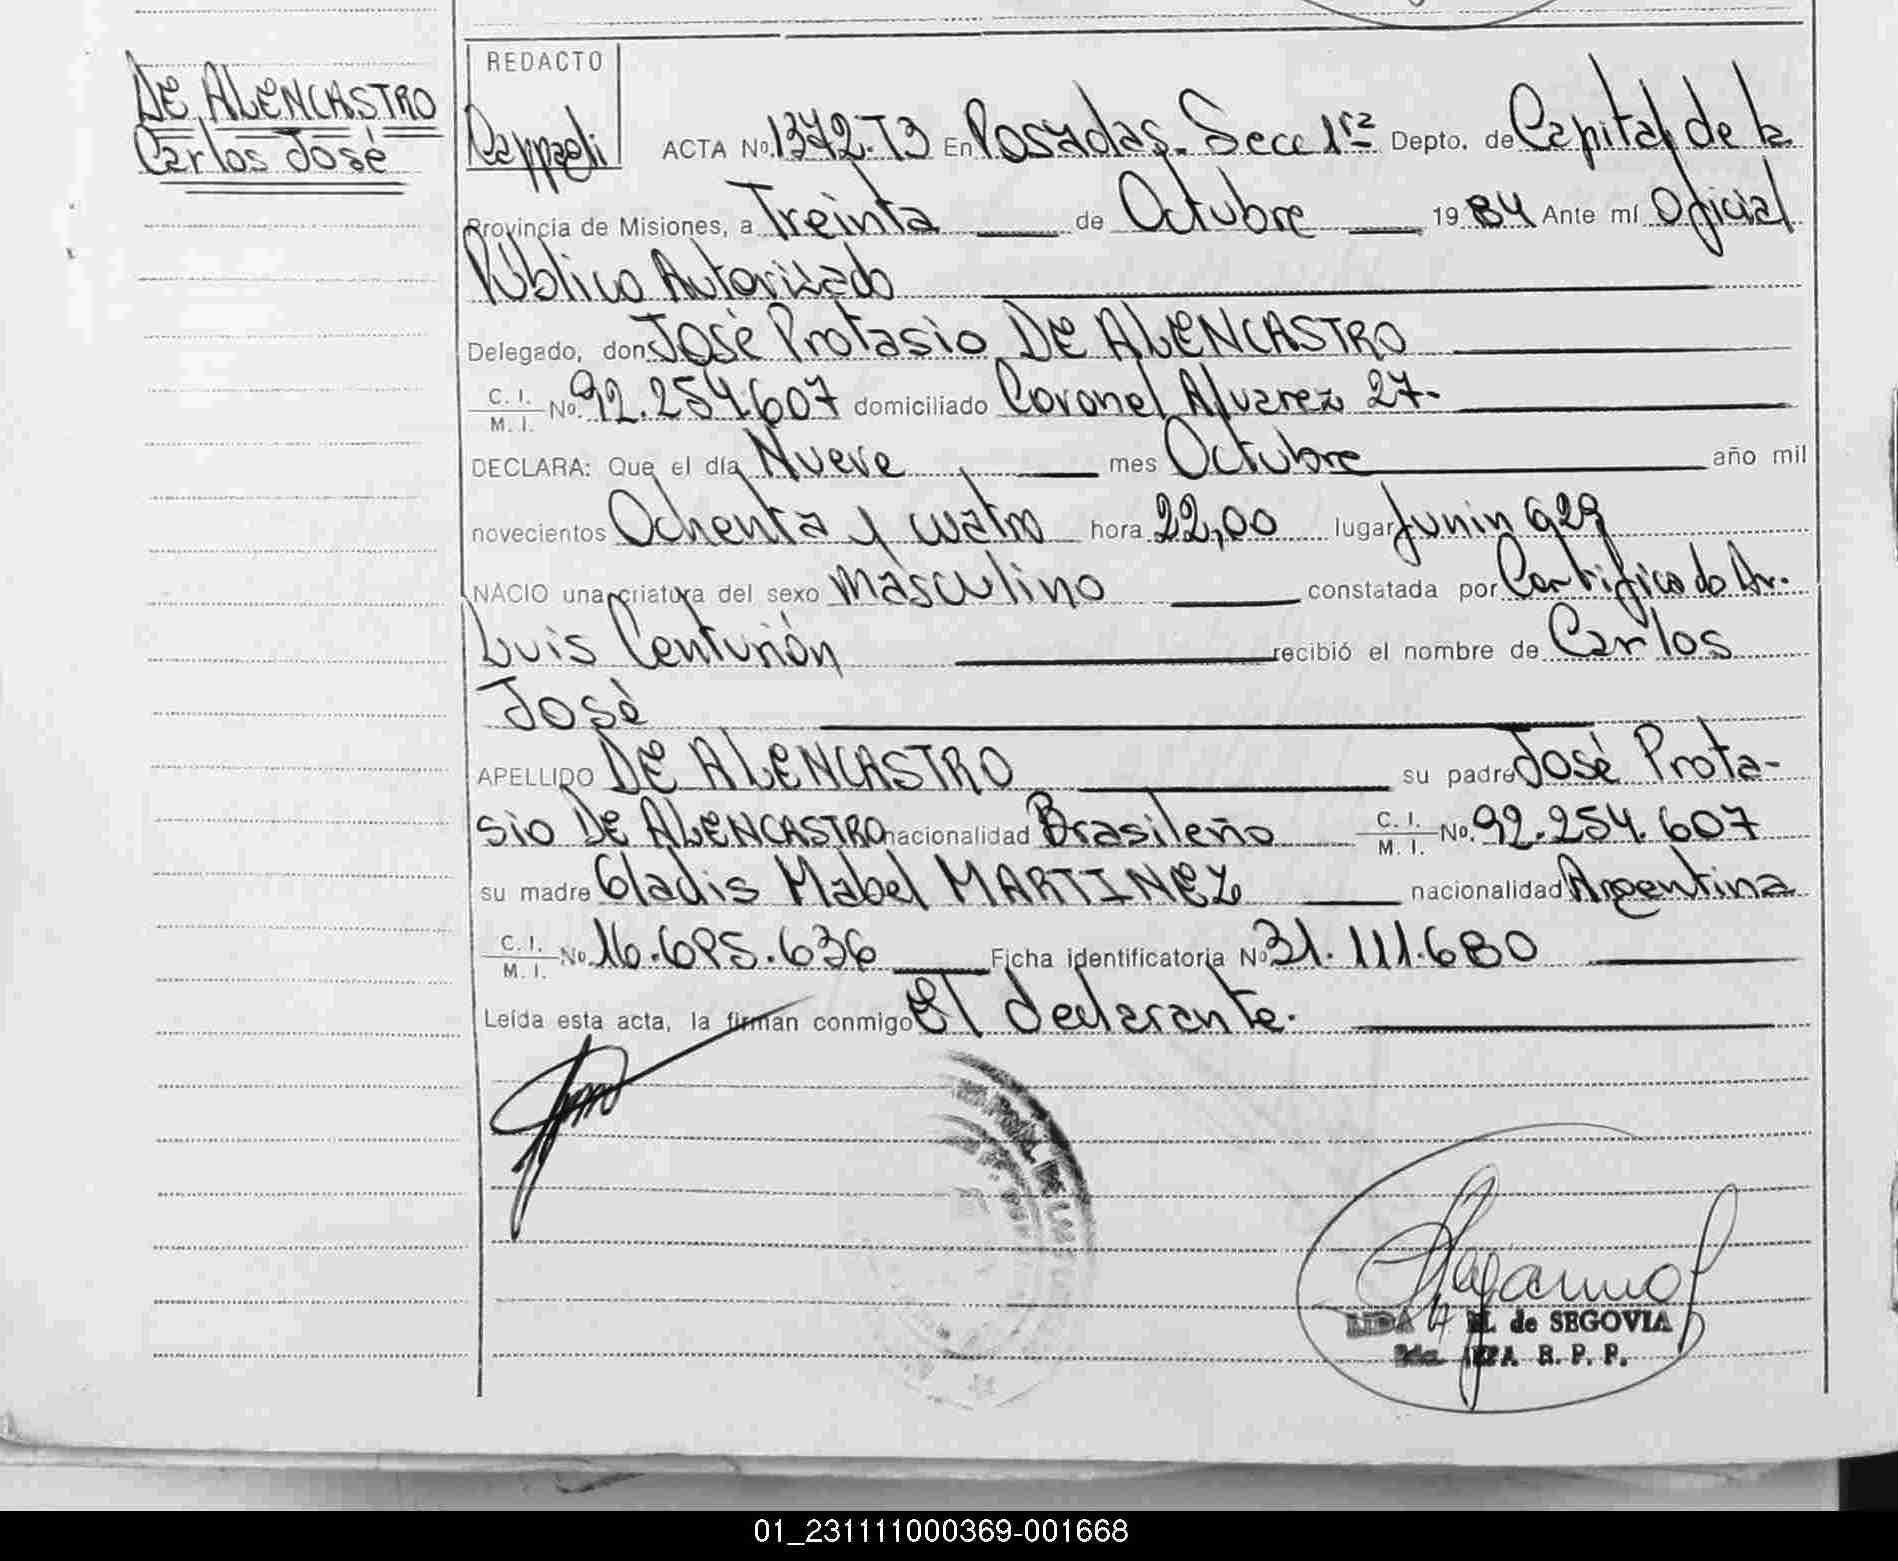 DE ALENCASTRO
Carlos José
REDACTO
ACTA Nº 1372-T3 En Posadas. Secc 1ra Depto. de Capital de la
Provincia de Misiones, a Treinta de Octubre 1984 Ante mí Oficial
Público Autorizado
Delegado, don José Protasio DE ALENCASTRO
C. I.
M. I. Nº 92.254.607 domiciliado Coronel Alvarez 27-
DECLARA: Que el día Nueve mes Octubre año mil
novecientos Ochenta y cuatro hora 22,00 lugar Junin 929
NACIO una criatura del sexo masculino constatada por Certificado Dr.
Luis Centurión recibió el nombre de Carlos
José
APELLIDO DE ALENCASTRO su padre José Prota-
sio DE ALENCASTRO nacionalidad Brasileño C. I. M. I. Nº 92.254.607
su madre Gladis Mabel MARTINEZ nacionalidad Argentina
C. I.
M. I. Nº 16.695.636 Ficha identificatoria Nº 31.111.680
Leída esta acta, la firman conmigo El declarante.
LIDA M. de SEGOVIA
JEFA R. P. P.
01_231111000369-001668